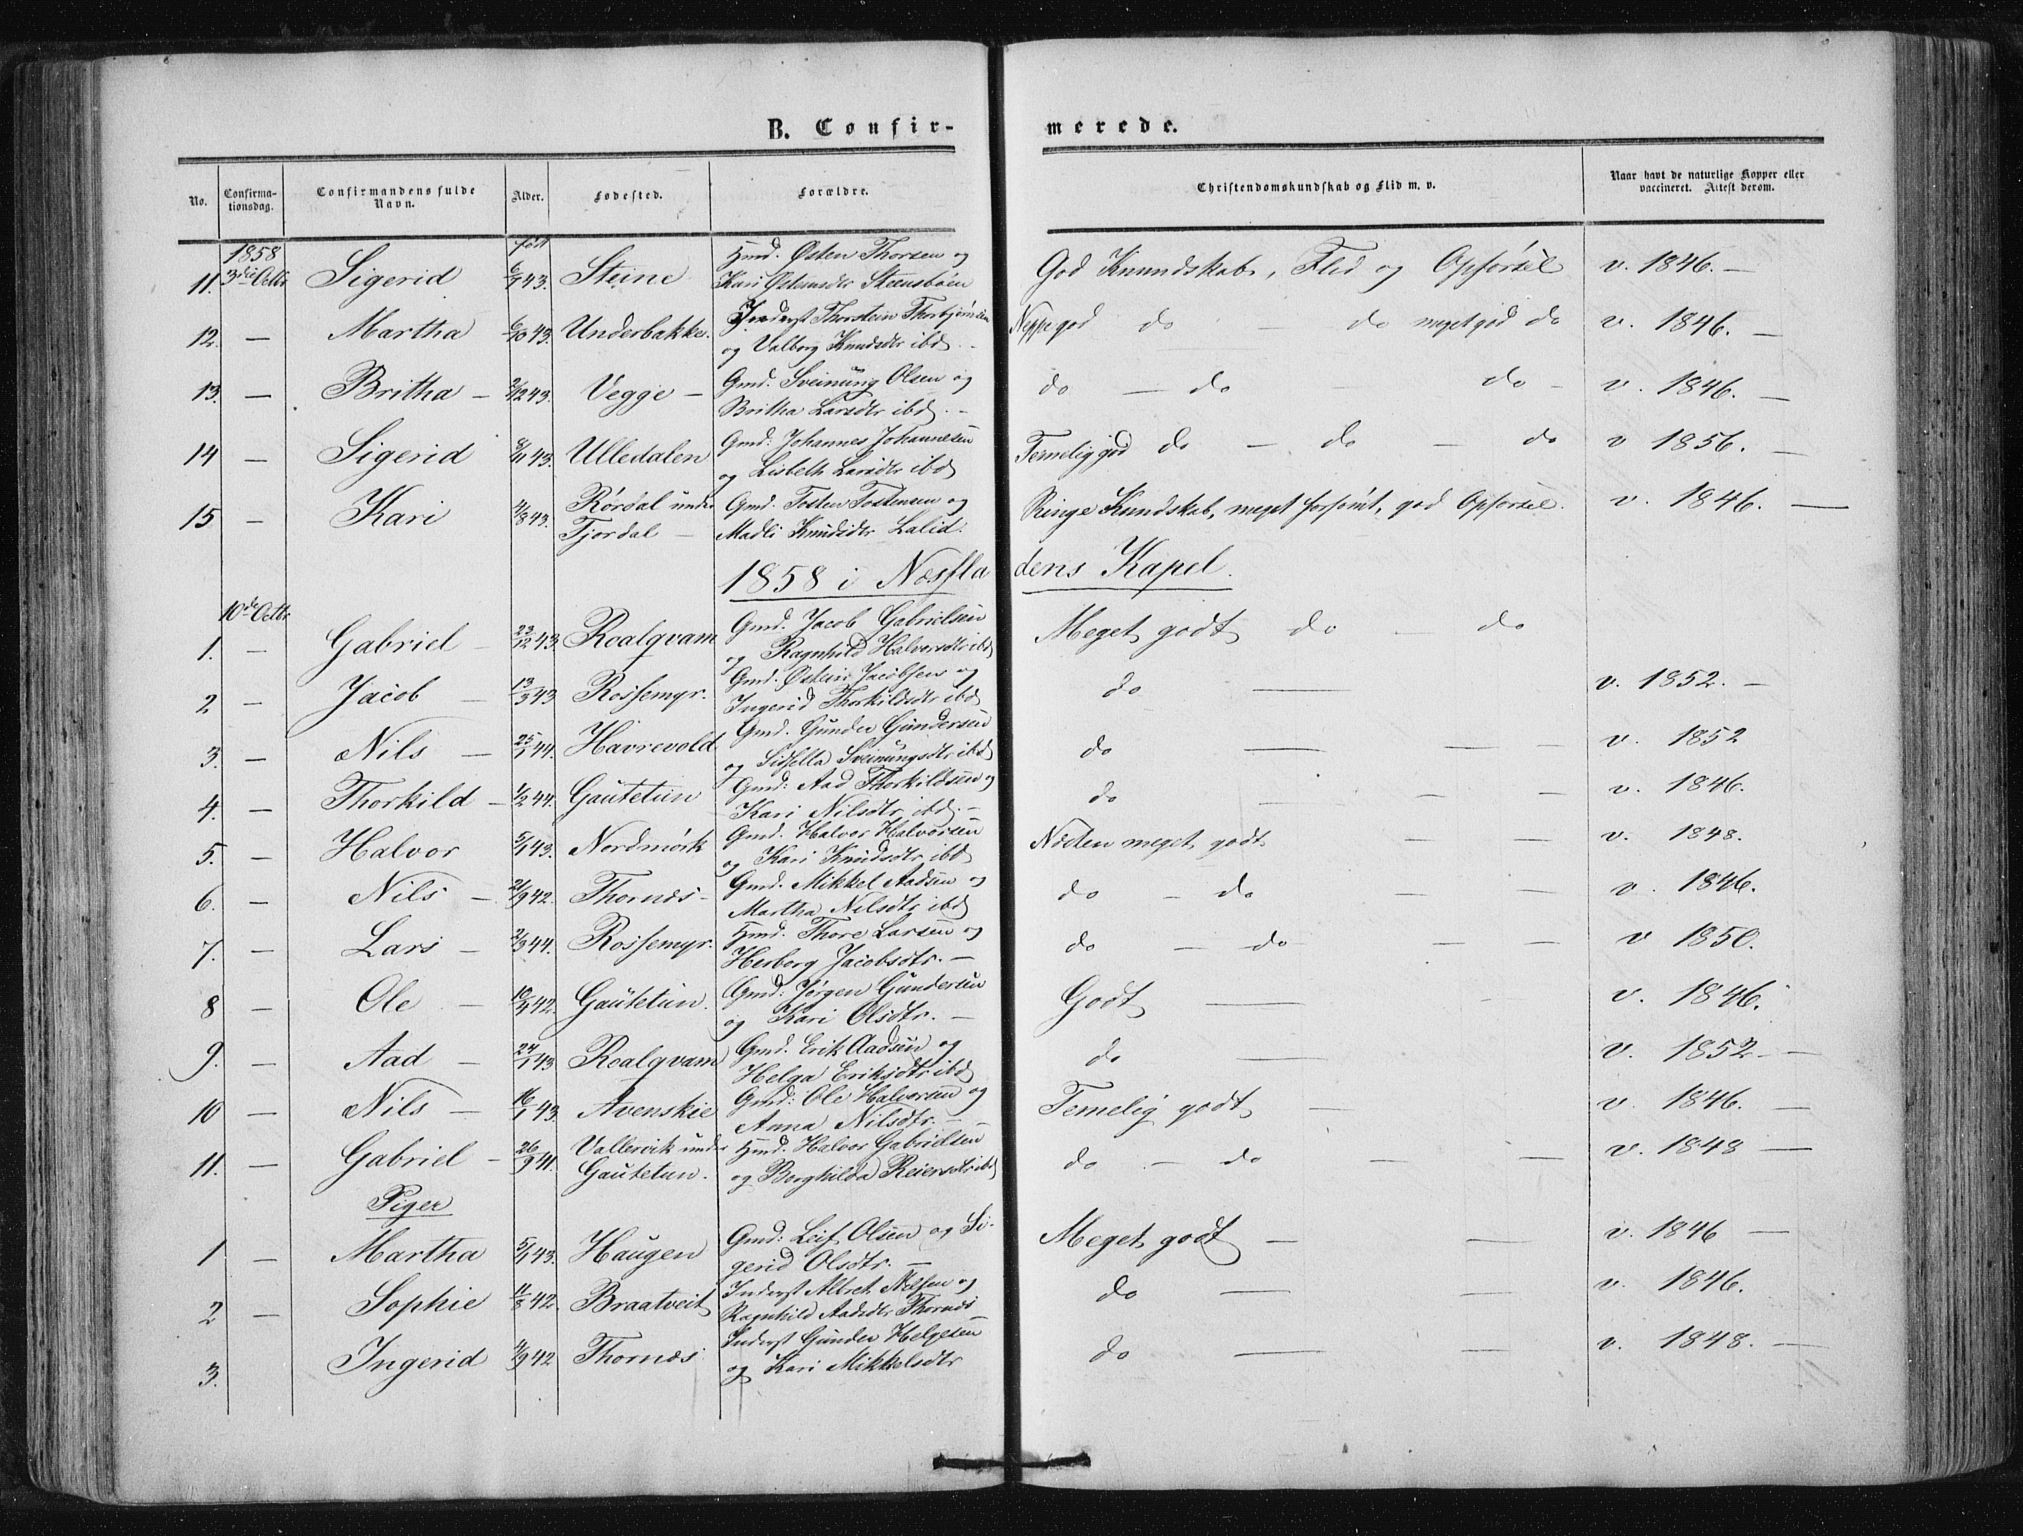 B. Confir-
merede.
No. Confirma-tionsdag. Confirmandens fulde Navn. Alder. Fødested. Forældre. Christendomskundskab og Flid m. v. Naar havt de naturlige Kopper eller vaccineret. Attest derom.
1858 født Hmd. Østen Thorsen og
11. 3die Octbr Sigerid 6/7 43. Steine Kari Østensdtr Steensbøen God Kundskab, Flid og Opførsel v. 1846. —
Inderst Thorstein Thorbjørnsen
12. — Martha 6/10 43. Underbakke. og Valborg Knudsdtr ibd. — Neppe god do — do meget god do v. 1846. —
Gmd. Sveinung Olsen og
13. — Britha — 2/12 43. Vegge — Britha Larsdtr ibd. — do — do — do — v. 1846. —
Gmd: Johannes Johannesen
14 — Sigerid 8/11 43. Ulledalen og Lisbeth Larsdtr ibd Temelig god do — do — do v 1856. —
Rørdal under Gmd. Tosten Tostensen og
15 — Kari 4/8 43. Fjordal — Madli Knudsdtr Lalid. Ringe Kundskab, meget forsømt, god Opførsel. v. 1846. —
1858 i Næsfla dens Kapel.
10de Octbr Gmd. Jacob Gabrielsen
1. — Gabriel — 23/12 43. Roalqvam og Ragnhild Halvorsdtr ibd Meget godt do — do
Gmd. Østein Jacobsen og
2 — Jacob — 13/3 43 Rossemyr. Ingerid Thorkildsdtr ibd do — v. 1852. —
Gmd. Gunder Gundersen
3. — Nils — 25/1 44. Havrevold og Sidsella Sveinungsdtr ibd do — — — v. 1852
Gmd: Aad Thorkildsen og
4. — Thorkild — 1/2 44. Gautetun Kari Nilsdtr ibd. — do — — — v. 1846.
Gmd. Halvor Halvorsen
5. — Halvor 5/1 43. Nordmørk og Kari Knudsdtr ibd Næsten meget godt — — v. 1848.
Gmd. Mikkel Aadsen og
6. — Nils — 21/9 42. Thornæs — Martha Nilsdtr ibd do — do — — v. 1846.
Hmd. Thore Larsen og
7. — Lars — 2/3 44. Rossemyr. Herborg Jacobsdtr. — do — do — — v 1850.
Gmd: Jørgen Gundersen
8 — Ole — 10/9 42. Gautetun. og Kari Olsdtr. — Godt — — v. 1846.
Gmd. Erik Aadsen og
9. — Aad — 24/1 43. Roalqvam Helga Eriksdtr ibd do — v. 1852. —
Gmd: Ole Halvorsen og
10 — Nils — 16/1 43. Avenskie Anna Nilsdtr. — Temelig godt — — v. 1846. —
Vallervik under Hmd. Halvor Gabrielsen
11. — Gabriel — 26/9 41. Gautetun. og Borghilda Reiersdtr ibd do — do — — v. 1848 —
Piger
Gmd: Leif Olsen og Si-
1 — Martha 5/1 43. Haugen gerid Olsdtr. — Meget godt — — v. 1846 —
Inderst Nilsen og
2 — Sophie 11/8 42. Braatveit Ragnhild Aadsdtr Thornæs do — — v. 1846.
Inderst Gunder Helgesen
3. Ingerid 4/9 42 Thornæs og Kari Mikkelsdtr do — — v. 1848. —